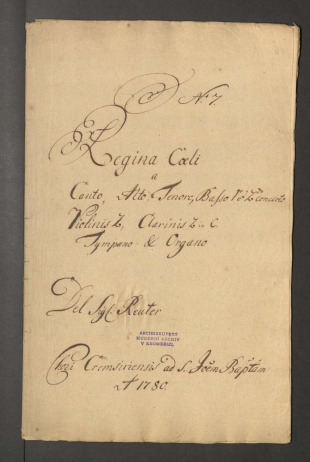 No 7.
Regina Cœli
a
Canto, Alto, Tenore, Basso
Violinis 2, Clarinis 2 in C.
Tympano & Organo
Del Sig. Reuter
ARCIBISKUPSTV
HUDEBNÍ ARCHIV
V KROMĚŘÍŽI.
Chori Cremsiriensis ad S. Joẽm Baptãm
A 1780.